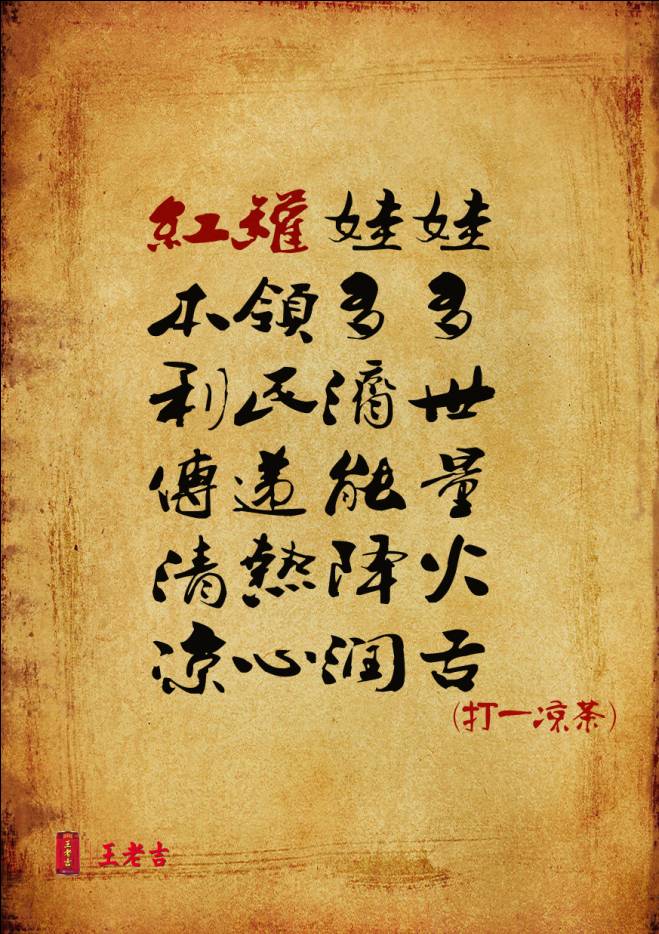 紅罐娃娃
本領多多
利民濟世
傳遞能量
清熱降火
涼心潤舌
(打一凉茶)
王老吉
王老吉